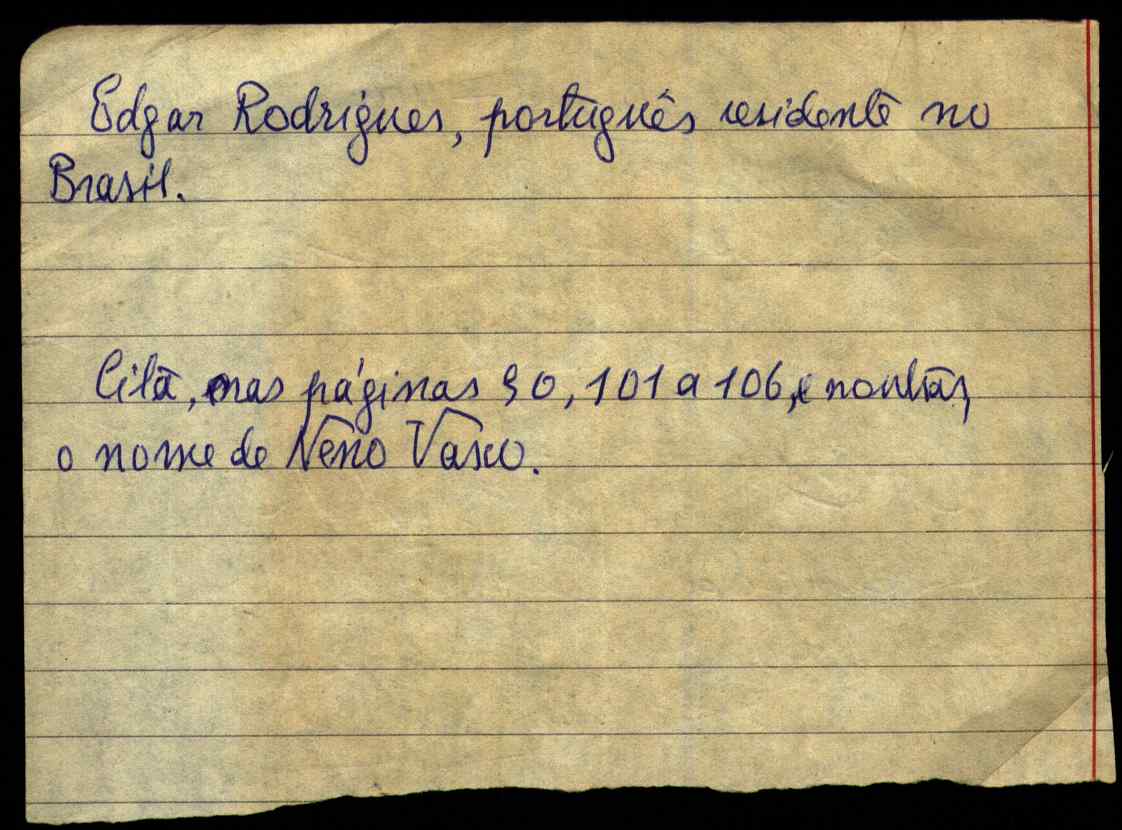 Edgar Rodrigues, português residente no
Brasil.
Cita, nas páginas 90, 101 a 106, e noutras,
o nome de Neno Vasco.